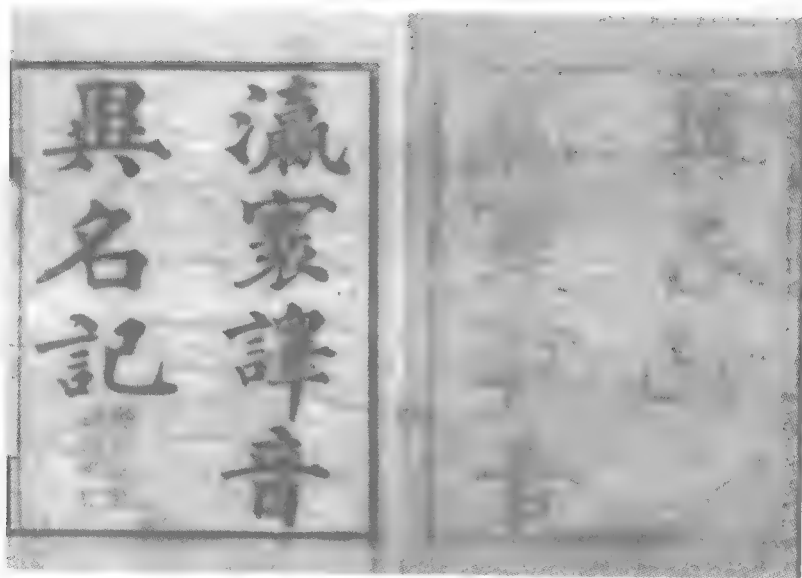 瀛寰譯音
異名記